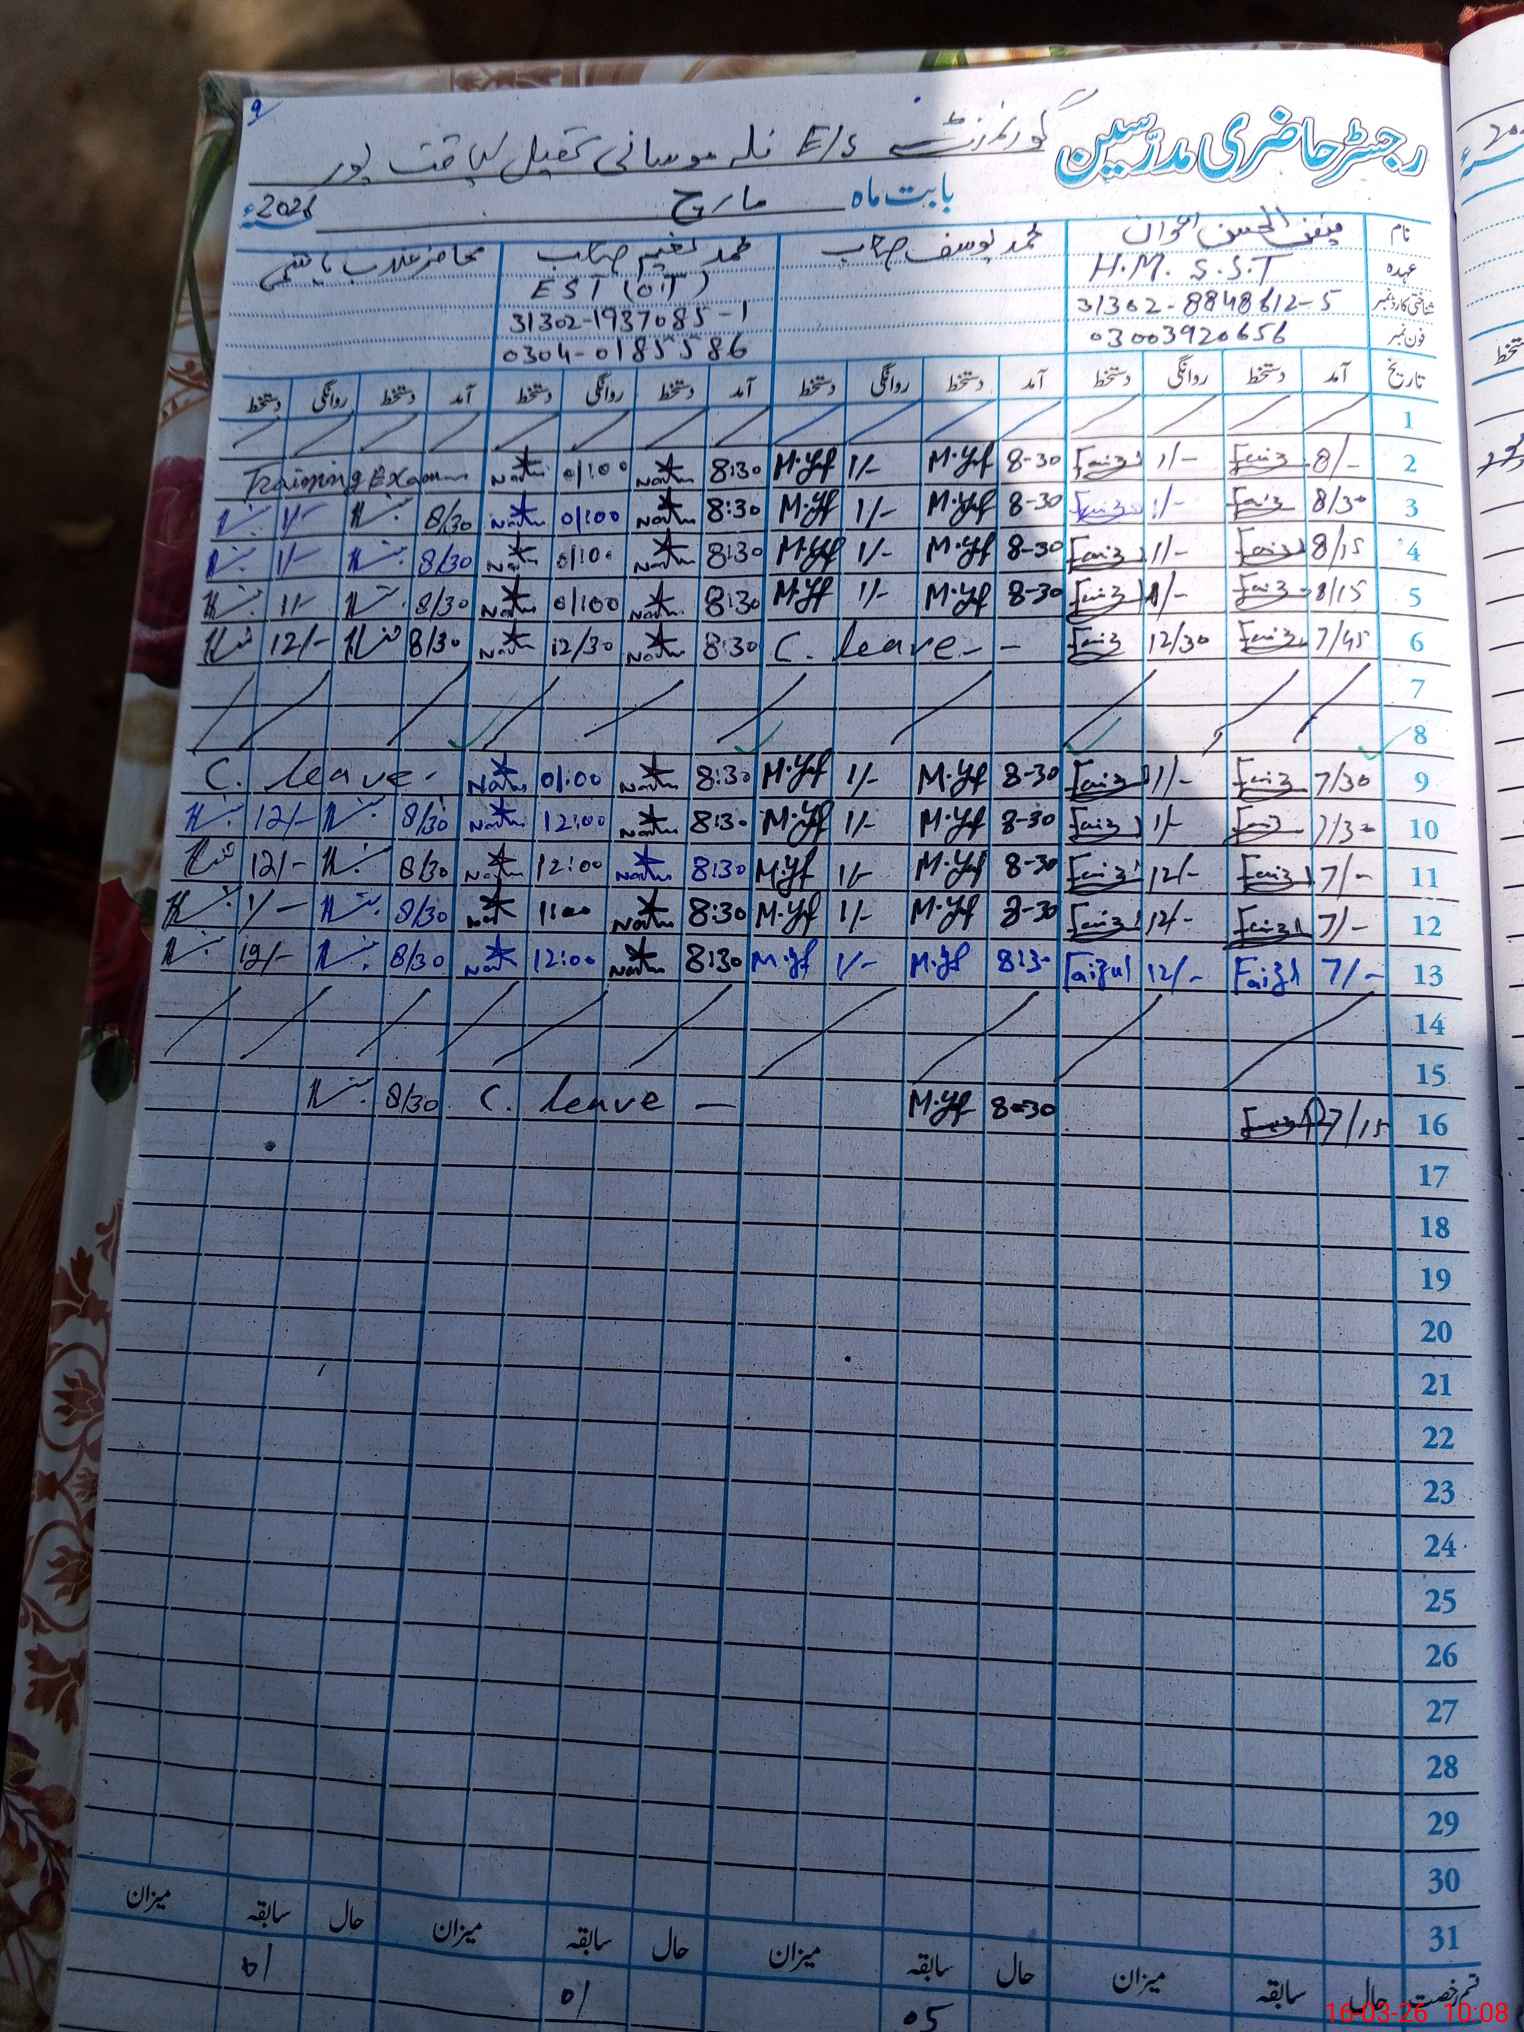 9
رجسٹر حاضری مدرسین گورنمنٹ E/S نلہ موسانی تحصیل لیاقت پور
بابت ماہ مارچ 2026ء
نام فیض الحسن اعوان محمد یوسف صاحب محمد نعیم صاحب
عہدہ H.M. S.S.T EST (O.T)
شناختی کارڈ نمبر 31302-8848612-5 31302-1937085-1
فون نمبر 03003920656 0304-0185586
تاریخ آمد دستخط روانگی دستخط آمد دستخط روانگی دستخط آمد دستخط روانگی دستخط آمد دستخط روانگی دستخط
1
2 8/- Faiz 1/- Faiz 8-30 M.Yf 1/- M.Yf 8:30 0/100 Training Exam
3 8/30 Faiz 1/- Faiz 8-30 M.Yf 1/- M.Yf 8:30 0/100 8/30 1/-
4 8/15 Faiz 1/- Faiz 8-30 M.Yf 1/- M.Yf 8:30 0/100 8/30 1/-
5 8/15 Faiz 1/- Faiz 8-30 M.Yf 1/- M.Yf 8:30 0/100 8/30 1/-
6 7/45 Faiz 12/30 Faiz C. leave - - 8:30 12/30 8/30 12/-
7
8
9 7/30 Faiz 1/- Faiz 8-30 M.Yf 1/- M.Yf 8:30 01:00 C. leave -
10 7/30 Faiz 1/- Faiz 8-30 M.Yf 1/- M.Yf 8:30 12:00 8/30 12/-
11 7/- Faiz 12/- Faiz 8-30 M.Yf 1/- M.Yf 8:30 12:00 8/30 12/-
12 7/- Faiz 12/- Faiz 8-30 M.Yf 1/- M.Yf 8:30 8/30 1/-
13 7/- Faizl 12/- Faizul 8:30 M.Yf 1/- M.Yf 8:30 12:00 8/30 12/-
14
15
16 7/15 Faiz 8-30 M.Yf C. leave - 8/30
17
18
19
20
21
22
23
24
25
26
27
28
29
30
31
قسم رخصت حال سابقہ میزان حال سابقہ میزان حال سابقہ میزان حال سابقہ میزان
05 01
16-03-26 10:08